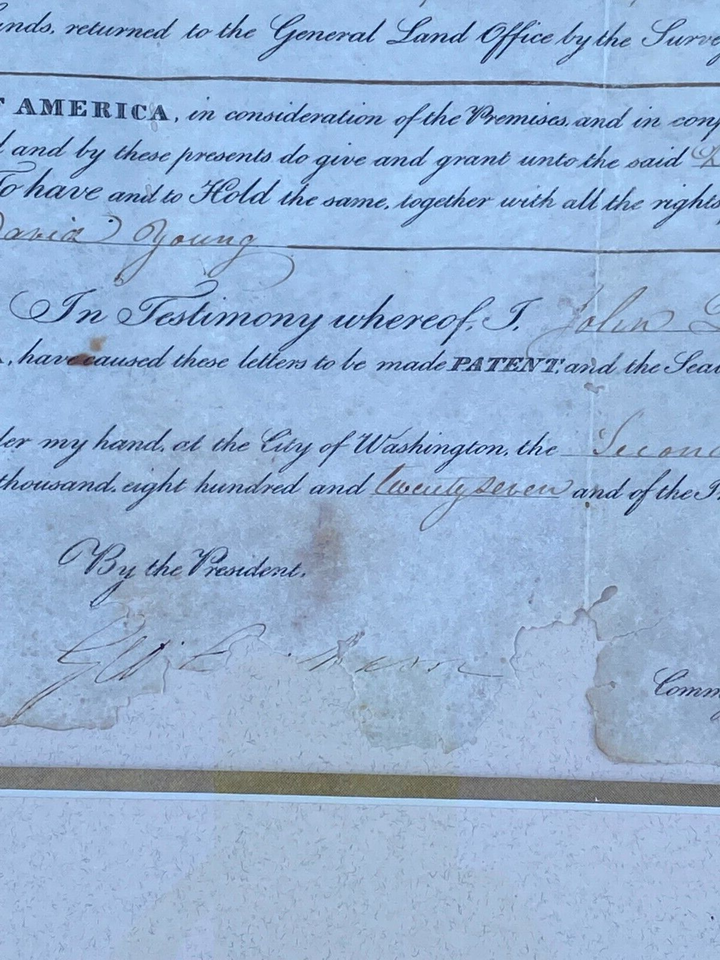 nds, returned to the General Land Office by the Surve
AMERICA, in consideration of the Premises, and in conf
and by these presents do give and grant unto the said
To have and to Hold the same, together with all the rights
David Young
In Testimony whereof, I, John
have caused these letters to be made PATENT, and the Sea
er my hand, at the City of Washington, the Second
thousand, eight hundred and twenty seven and of the
By the President,
Comm